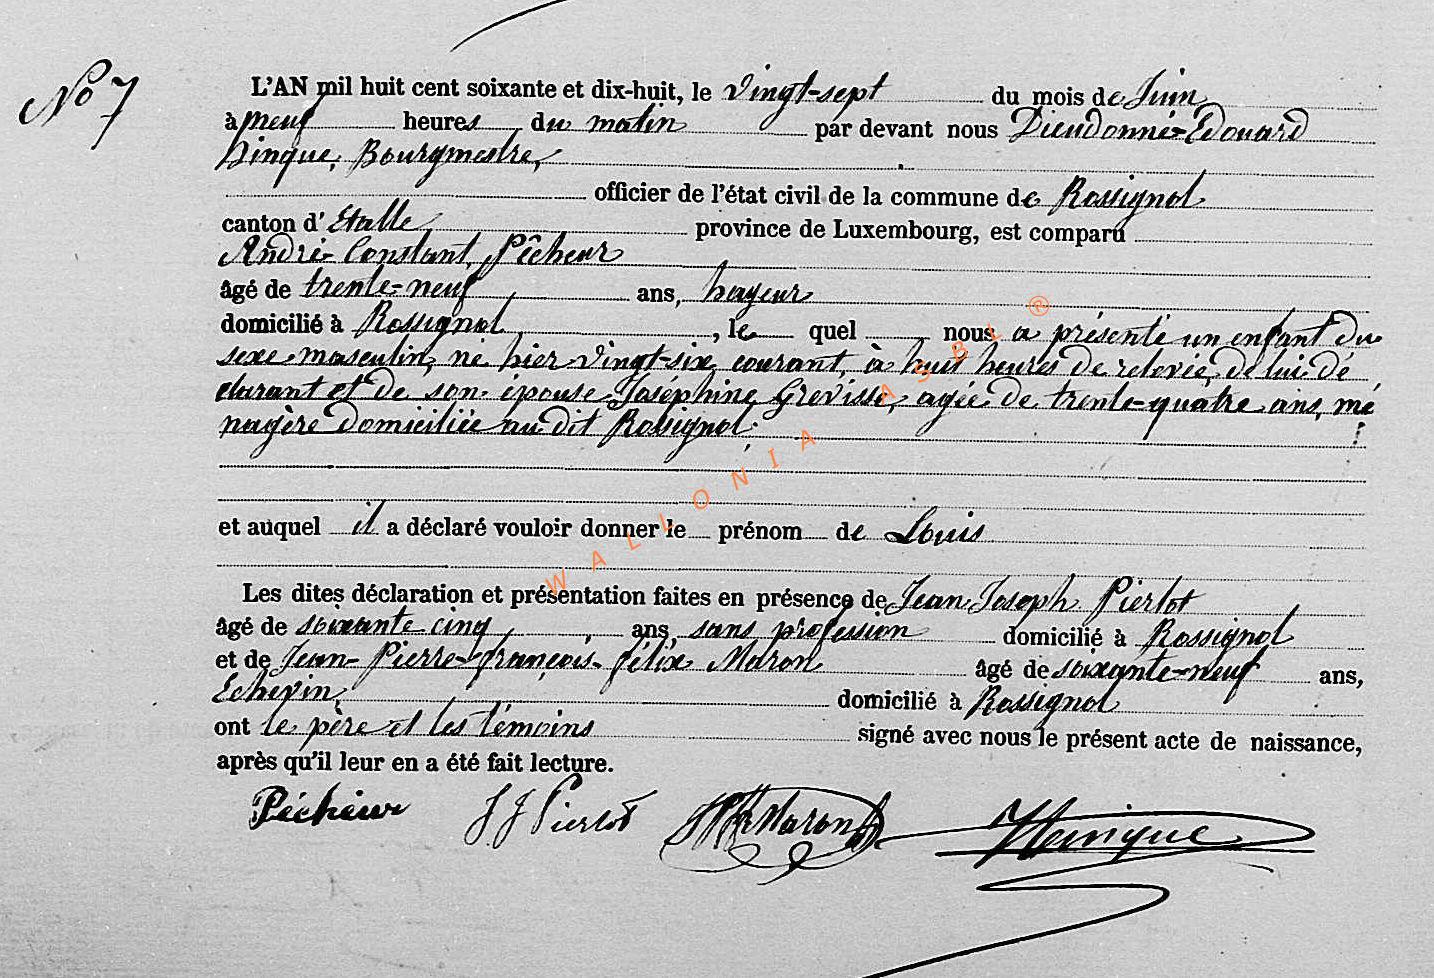 No 7
L'AN mil huit cent soixante et dix-huit, le vingt-sept du mois de Juin
à neuf heures du matin par devant nous Dieudonné-Edouard
Hinque, Bourgmestre,
officier de l'état civil de la commune de Rossignol
canton d'Etalle, province de Luxembourg, est comparu
André-Constant, Pêcheur
âgé de trente-neuf ans, hayeur
domicilié à Rossignol, le quel nous a présenté un enfant du
sexe masculin, né hier vingt-six courant, à huit heures de relevée, de lui dé
clarant et de son épouse Joséphine Grevisse, agée de trente-quatre ans, mé
nagère domiciliée au dit Rossignol;
et auquel il a déclaré vouloir donner le prénom de Louis
Les dites déclaration et présentation faites en présence de Jean Joseph Pierlot
âgé de soixante cinq, ans, sans profession domicilié à Rossignol
et de Jean-Pierre-François-Félix Maron âgé de soixante-neuf ans,
Echevin, domicilié à Rossignol
ont le père et les témoins signé avec nous le présent acte de naissance,
après qu'il leur en a été fait lecture.
Pécheur J J Pierlot Maron Hinque
WALLONIA ASBL ®